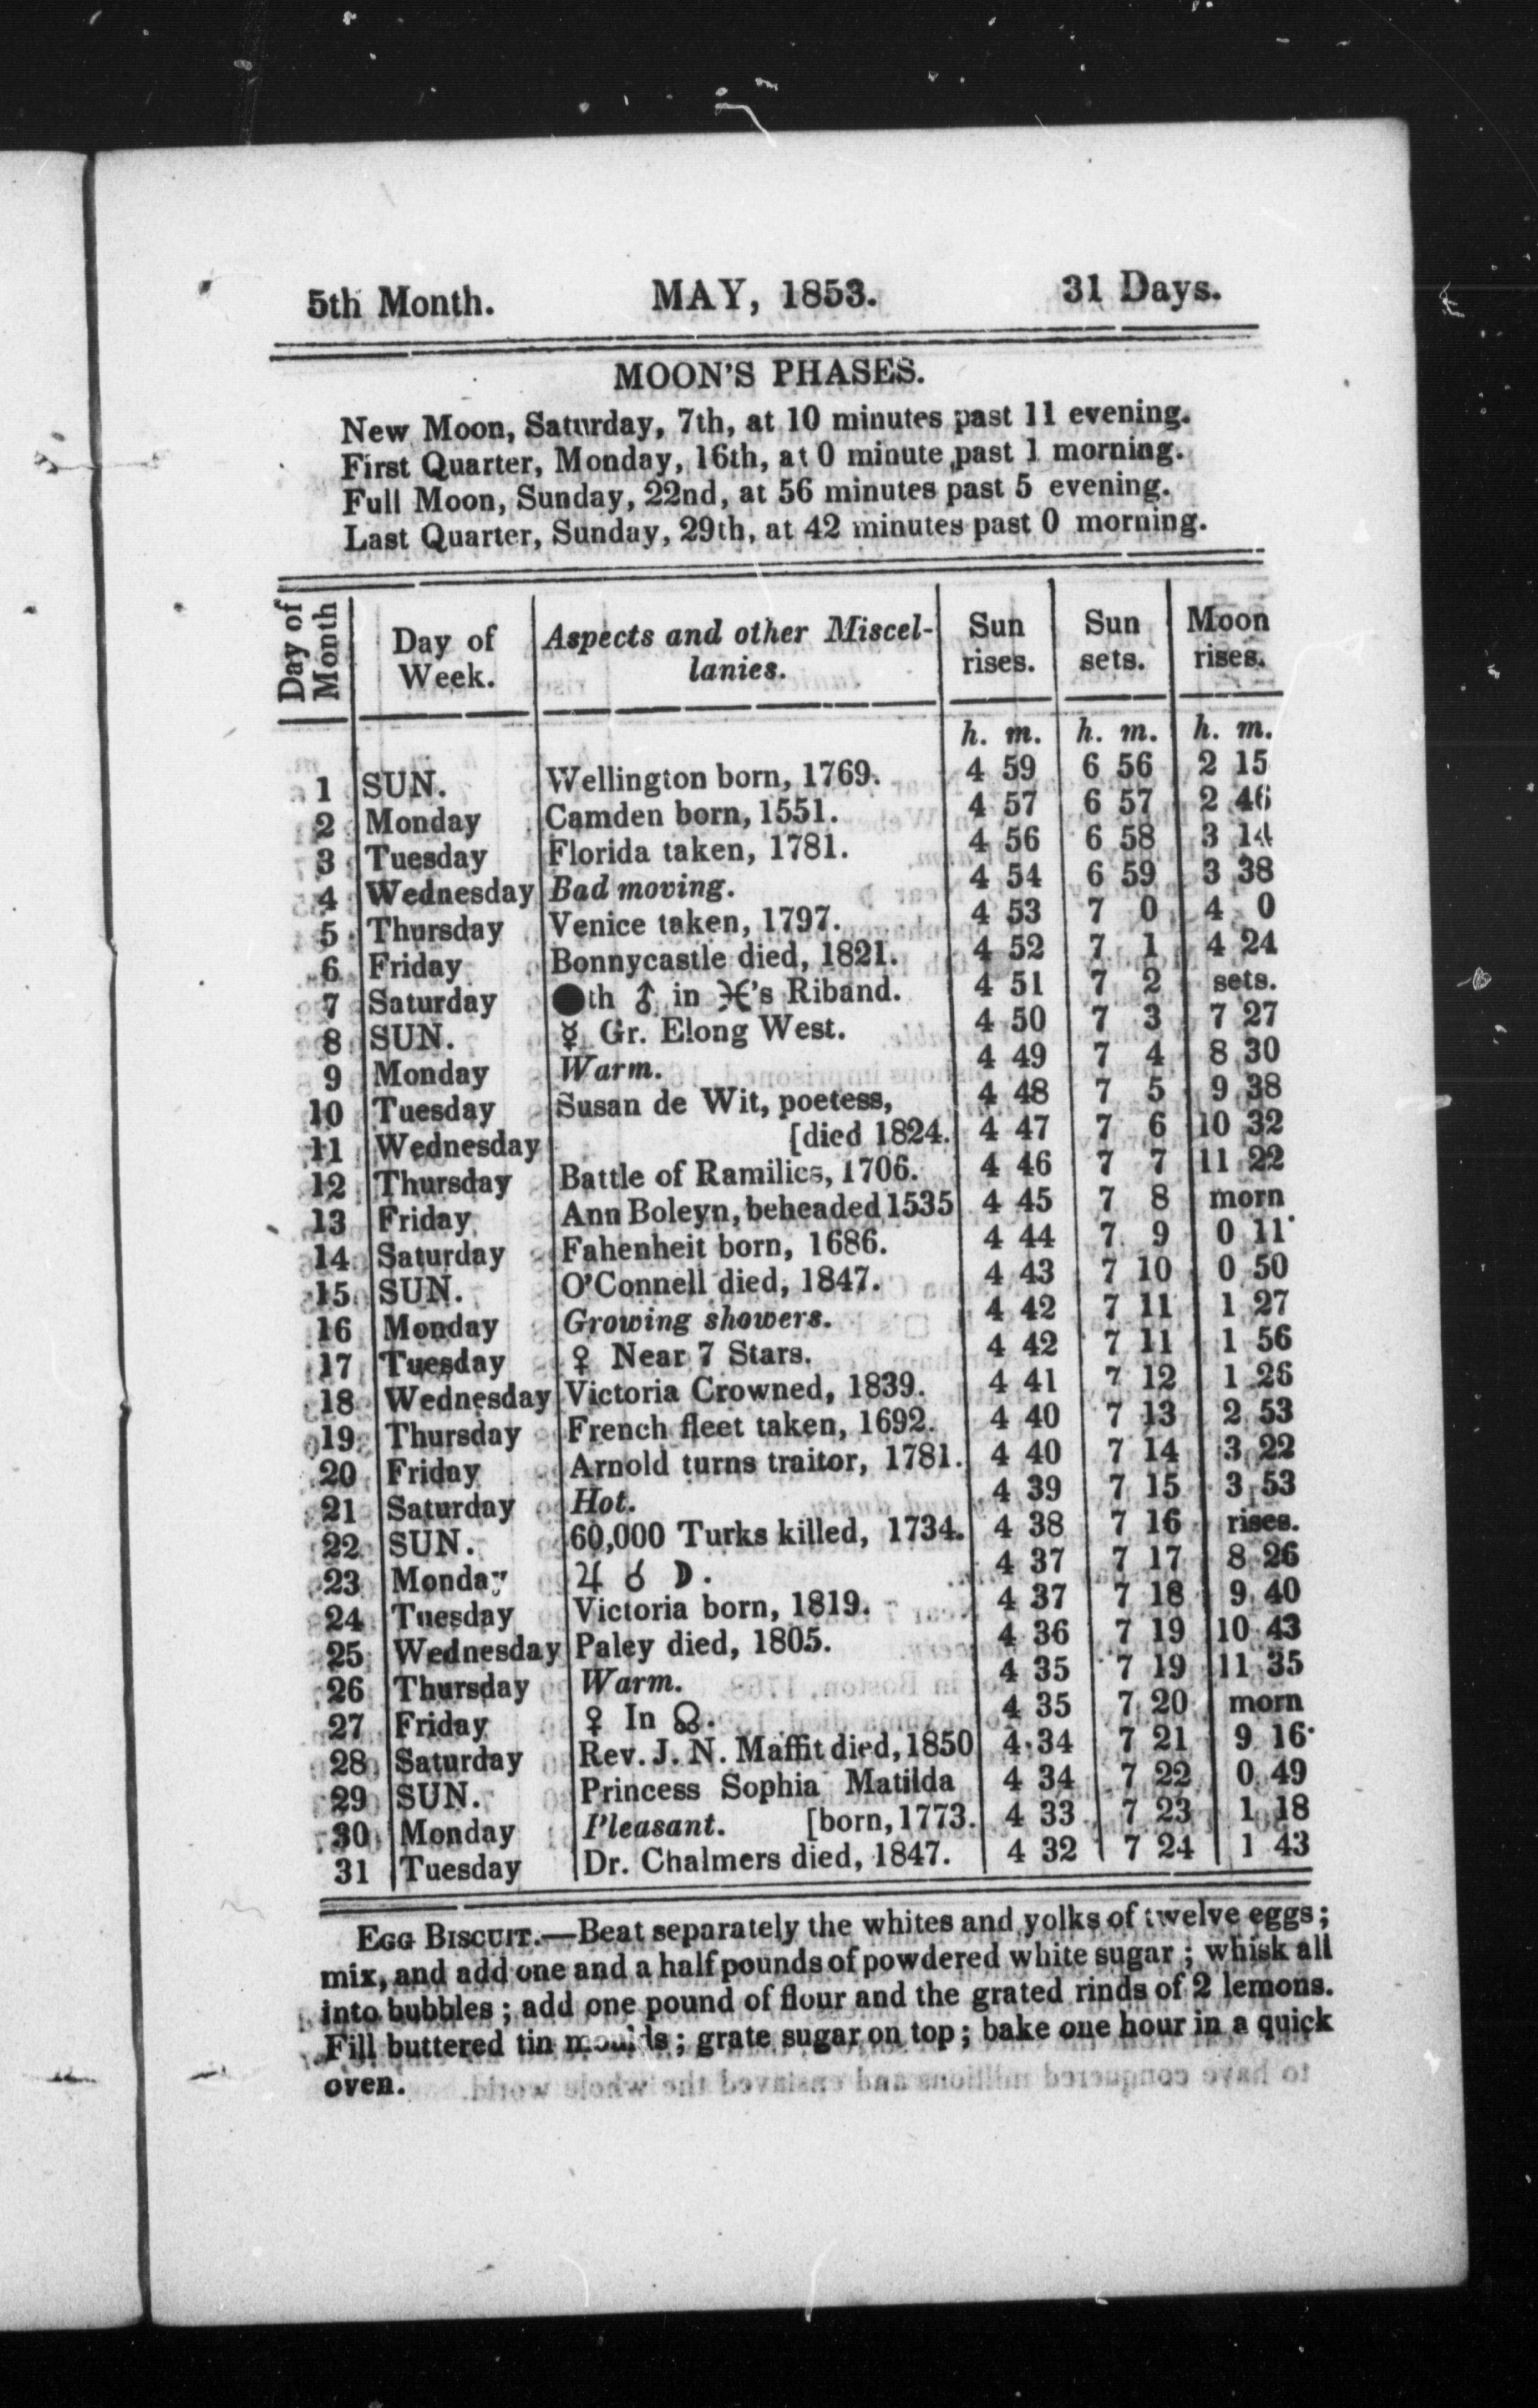 5th Month. MAY, 1853. 31 Days.
MOON'S PHASES.
New Moon, Saturday, 7th, at 10 minutes past 11 evening.
First Quarter, Monday, 16th, at 0 minute past 1 morning.
Full Moon, Sunday, 22nd, at 56 minutes past 5 evening.
Last Quarter, Sunday, 29th, at 42 minutes past 0 morning.
Day of Month | Day of Week. | Aspects and other Miscel-lanies. | Sun rises. | Sun sets. | Moon rises.
h. m. | h. m. | h. m.
1 SUN. Wellington born, 1769. 4 59 6 56 2 15
2 Monday Camden born, 1551. 4 57 6 57 2 46
3 Tuesday Florida taken, 1781. 4 56 6 58 3 14
4 Wednesday Bad moving. 4 54 6 59 3 38
5 Thursday Venice taken, 1797. 4 53 7 0 4 0
6 Friday Bonnycastle died, 1821. 4 52 7 1 4 24
7 Saturday ●th ♂ in ♓'s Riband. 4 51 7 2 sets.
8 SUN. ☿ Gr. Elong West. 4 50 7 3 7 27
9 Monday Warm. 4 49 7 4 8 30
10 Tuesday Susan de Wit, poetess, 4 48 7 5 9 38
11 Wednesday [died 1824. 4 47 7 6 10 32
12 Thursday Battle of Ramilies, 1706. 4 46 7 7 11 22
13 Friday Ann Boleyn, beheaded 1535 4 45 7 8 morn
14 Saturday Fahenheit born, 1686. 4 44 7 9 0 11
15 SUN. O'Connell died, 1847. 4 43 7 10 0 50
16 Monday Growing showers. 4 42 7 11 1 27
17 Tuesday ♀ Near 7 Stars. 4 42 7 11 1 56
18 Wednesday Victoria Crowned, 1839. 4 41 7 12 1 26
19 Thursday French fleet taken, 1692. 4 40 7 13 2 53
20 Friday Arnold turns traitor, 1781. 4 40 7 14 3 22
21 Saturday Hot. 4 39 7 15 3 53
22 SUN. 60,000 Turks killed, 1734. 4 38 7 16 rises.
23 Monday ♃ ☌ ☽. 4 37 7 17 8 26
24 Tuesday Victoria born, 1819. 4 37 7 18 9 40
25 Wednesday Paley died, 1805. 4 36 7 19 10 43
26 Thursday Warm. 4 35 7 19 11 35
27 Friday ♀ In ☊. 4 35 7 20 morn
28 Saturday Rev. J. N. Maffit died, 1850 4 34 7 21 9 16
29 SUN. Princess Sophia Matilda 4 34 7 22 0 49
30 Monday Pleasant. [born, 1773. 4 33 7 23 1 18
31 Tuesday Dr. Chalmers died, 1847. 4 32 7 24 1 43
EGG BISCUIT.—Beat separately the whites and yolks of twelve eggs;
mix, and add one and a half pounds of powdered white sugar; whisk all
into bubbles; add one pound of flour and the grated rinds of 2 lemons.
Fill buttered tin moulds; grate sugar on top; bake one hour in a quick
oven.